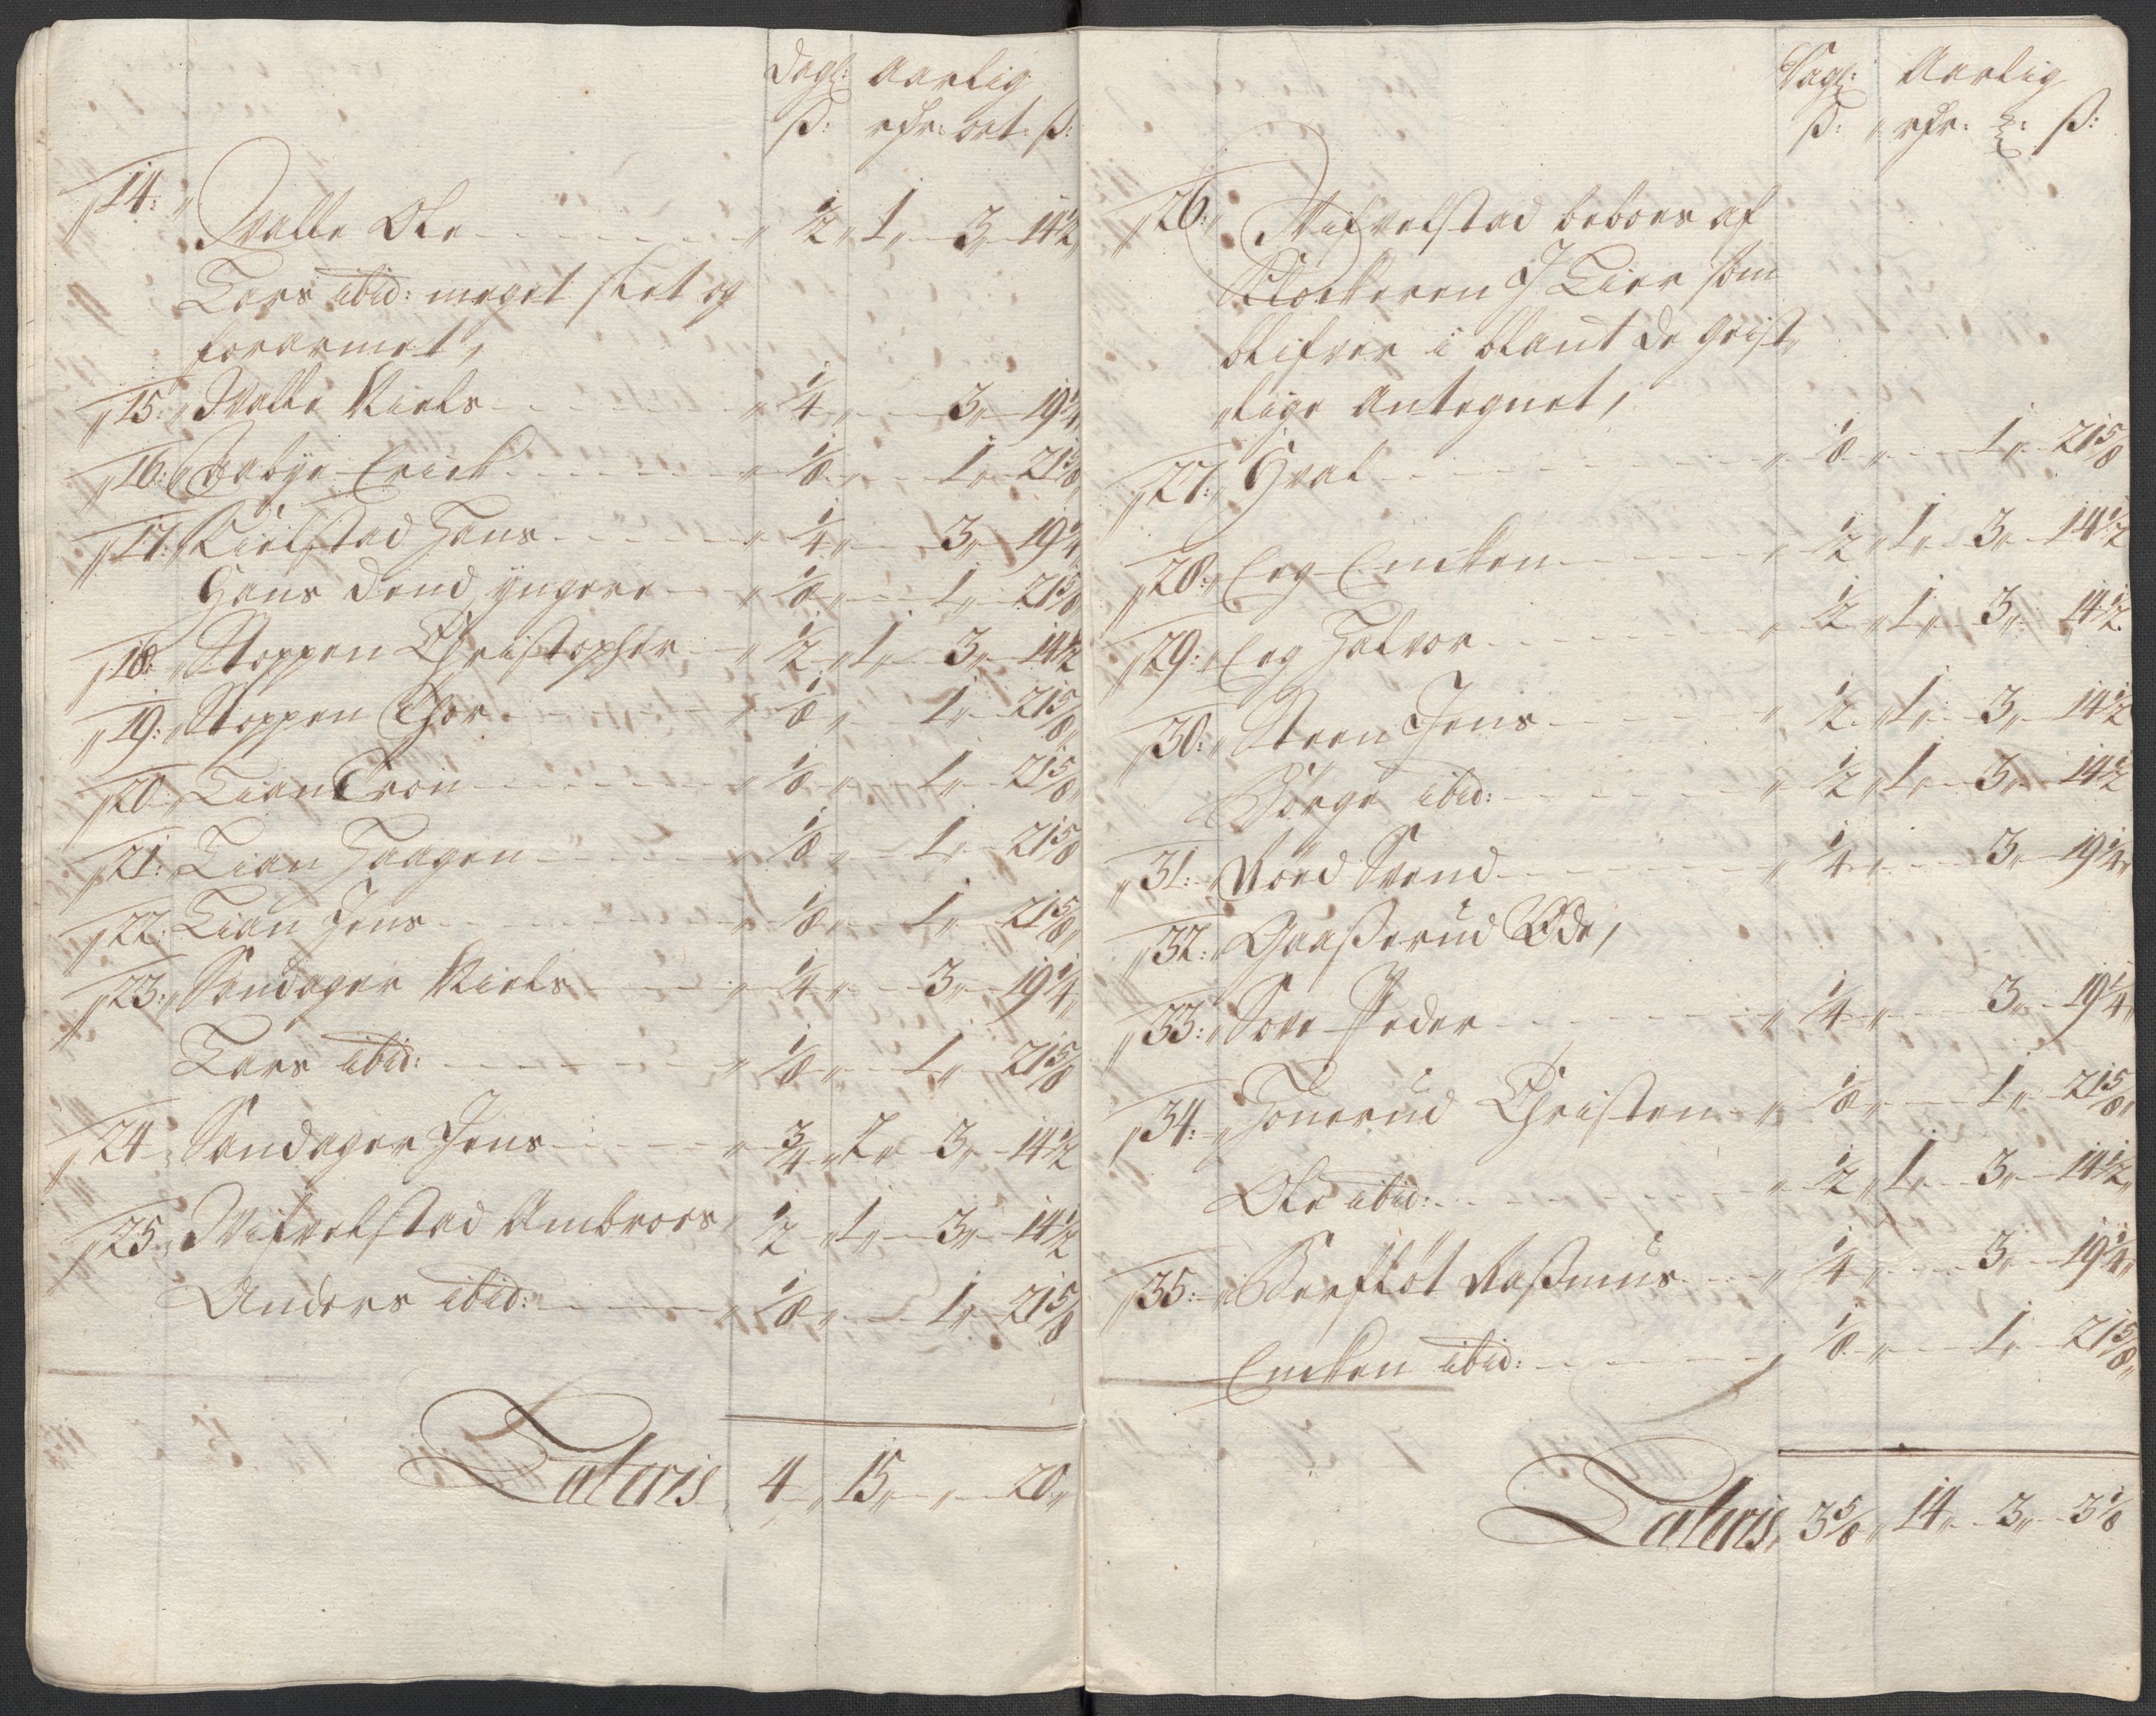 Dagl: Aarlig
ß: rdr: ort: ß:
14: Walle Ole - - - 1/2 1 3 14 1/2
Lars ibid: meget slet og
forarmet,
15: Walle Niels - - - 1/4 3 19 1/4
16: Erich - - - 1/8 1 21 5/8
17: Kielstad Hans - - - 1/4 3 19 1/4
Hans dend yngere - - 1/8 1 21 5/8
18: Stoppen Christopher - 1/2 1 3 14 1/2
19: Stoppen Thor - - - 1/8 1 21 5/8
20: Lian Tron - - - 1/8 1 21 5/8
21: Lian Haagen - - - 1/8 1 21 5/8
22: Lian Jens - - - 1/8 1 21 5/8
23: Sandager Niels - - - 1/4 3 19 1/4
Lars ibid: - - - 1/8 1 21 5/8
24 Sandager Jens - - - 3/4 2 3 14 1/2
25: Wifvelstad Ambroes, 1/2 1 3 14 1/2
Anders ibid: - - - 1/8 1 21 5/8
Lateris 4 15 „ 20
Dagl: Aarlig
ß: rdr: ß:
26: Wifvelstad beboes af
Klockeren J Lier som
blifver i blant de Geist,
lige Antegnet,
27: Hval - - - 1/8 1 21 5/8
28: Eeg Encken - - - 1/2 1 3 14 1/2
29: Eeg Halvor - - - 1/2 1 3 14 1/2
30: Steen Jens - - - 1/2 1 3 14 1/2
Börge ibid: - - - 1/2 1 3 14 1/2
31: Svend - - - 1/4 3 19 1/4
32: Gaaßerud Øde,
33: Peder - - - 1/4 3 19 1/4
34: Tonerud Christen - 1/8 1 21 5/8
Ole ibid: - - - 1/2 1 3 14 1/2
35: Berflöt Raßmus - - 1/4 3 19 1/4
Encken ibid: - - - 1/8 1 21 5/8
Lateris, 3 5/8 14 3 3 1/8